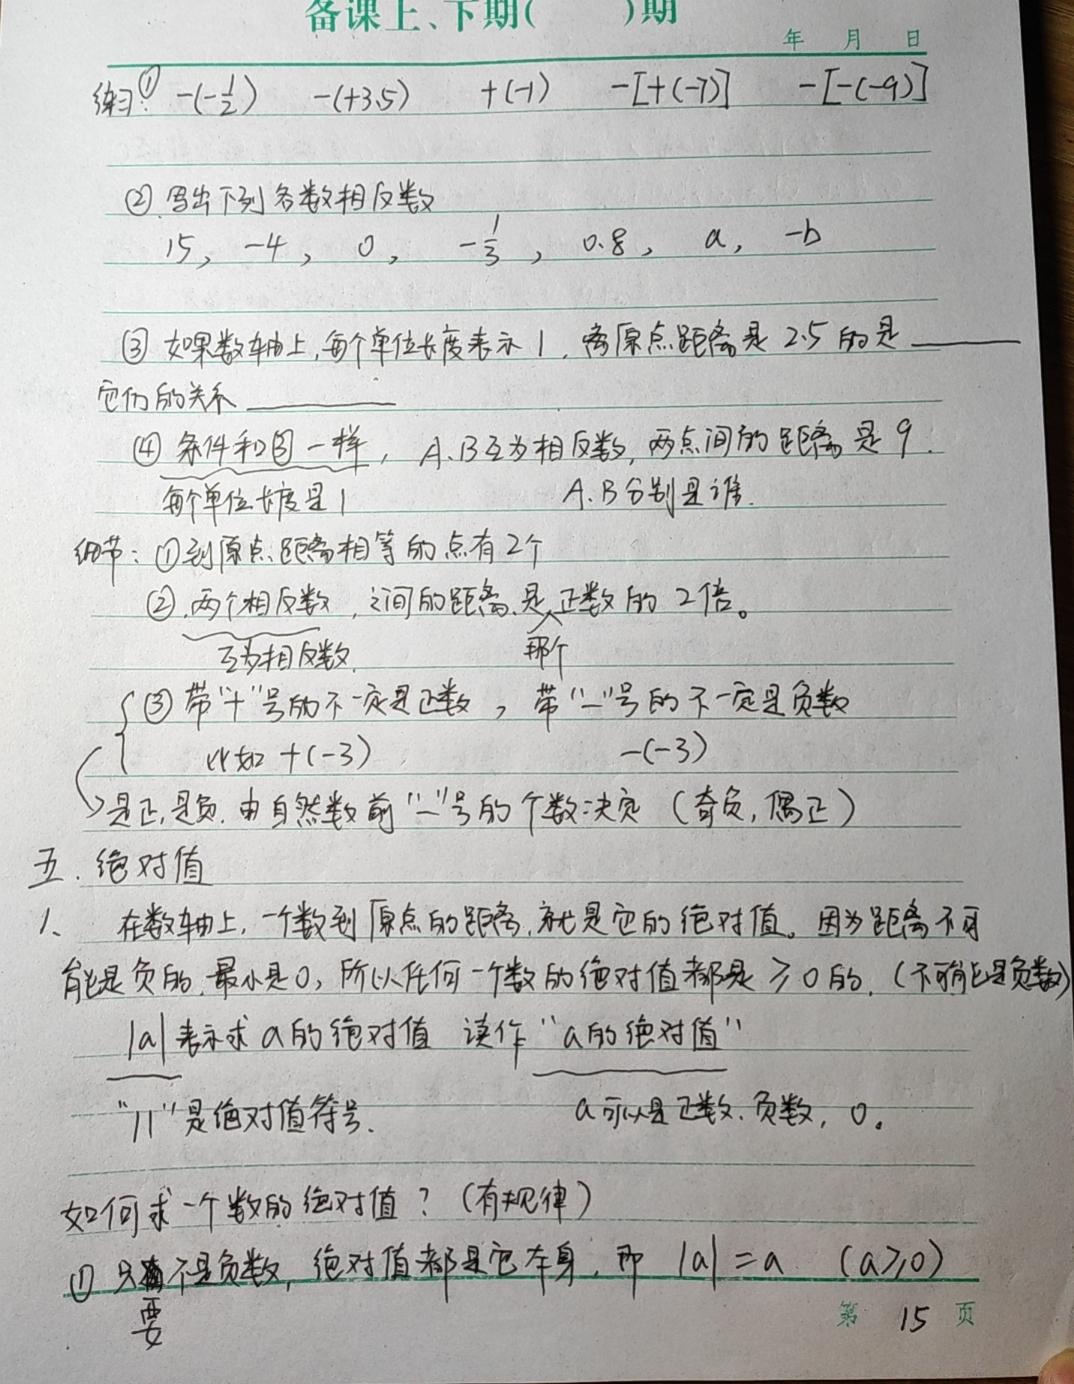 备课上、下期(    )期
年 月 日
练习: ① -(-1/2)   -(+3.5)   +(-1)   -[+(-7)]   -[-(-9)]
② 写出下列各数相反数
15, -4, 0, -1/3, 0.8, a, -b
③ 如果数轴上,每个单位长度表示1,离原点距离是2.5的是______
它们的关系______
④ 条件和图一样, A.B互为相反数,两点间的距离是9.
每个单位长度是1   A.B分别是谁.
细节: ①到原点距离相等的点有2个
②.两个相反数,之间的距离是正数的2倍。
互为相反数.   那个
③ 带"+"号的不一定是正数, 带"-"号的不一定是负数
比如 +(-3)   -(-3)
是正,是负.由自然数前"-"号的个数决定 (奇负,偶正)
五. 绝对值
1、 在数轴上,一个数到原点的距离,就是它的绝对值。因为距离不可
能是负的,最小是0,所以任何一个数的绝对值都是≥0的.(不可能是负数)
|a|表示求a的绝对值 读作"a的绝对值"
"||"是绝对值符号.   a可以是正数.负数,0。
如何求一个数的绝对值?(有规律)
① 只要不是负数,绝对值都是它本身,即 |a|=a (a≥0)
第 15 页